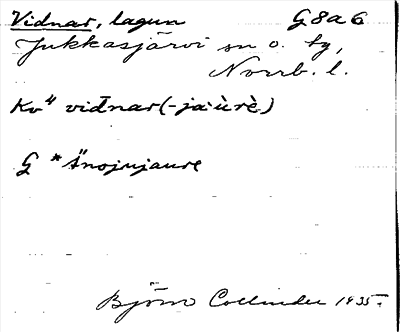 Vidnar, lagun G8a6
Jukkasjärvi sn o. tg,
Norrb. l.
Kv⁴ viđnar(-ja·ùrè)
G *Änojujaure
Björn Collinder 1935.